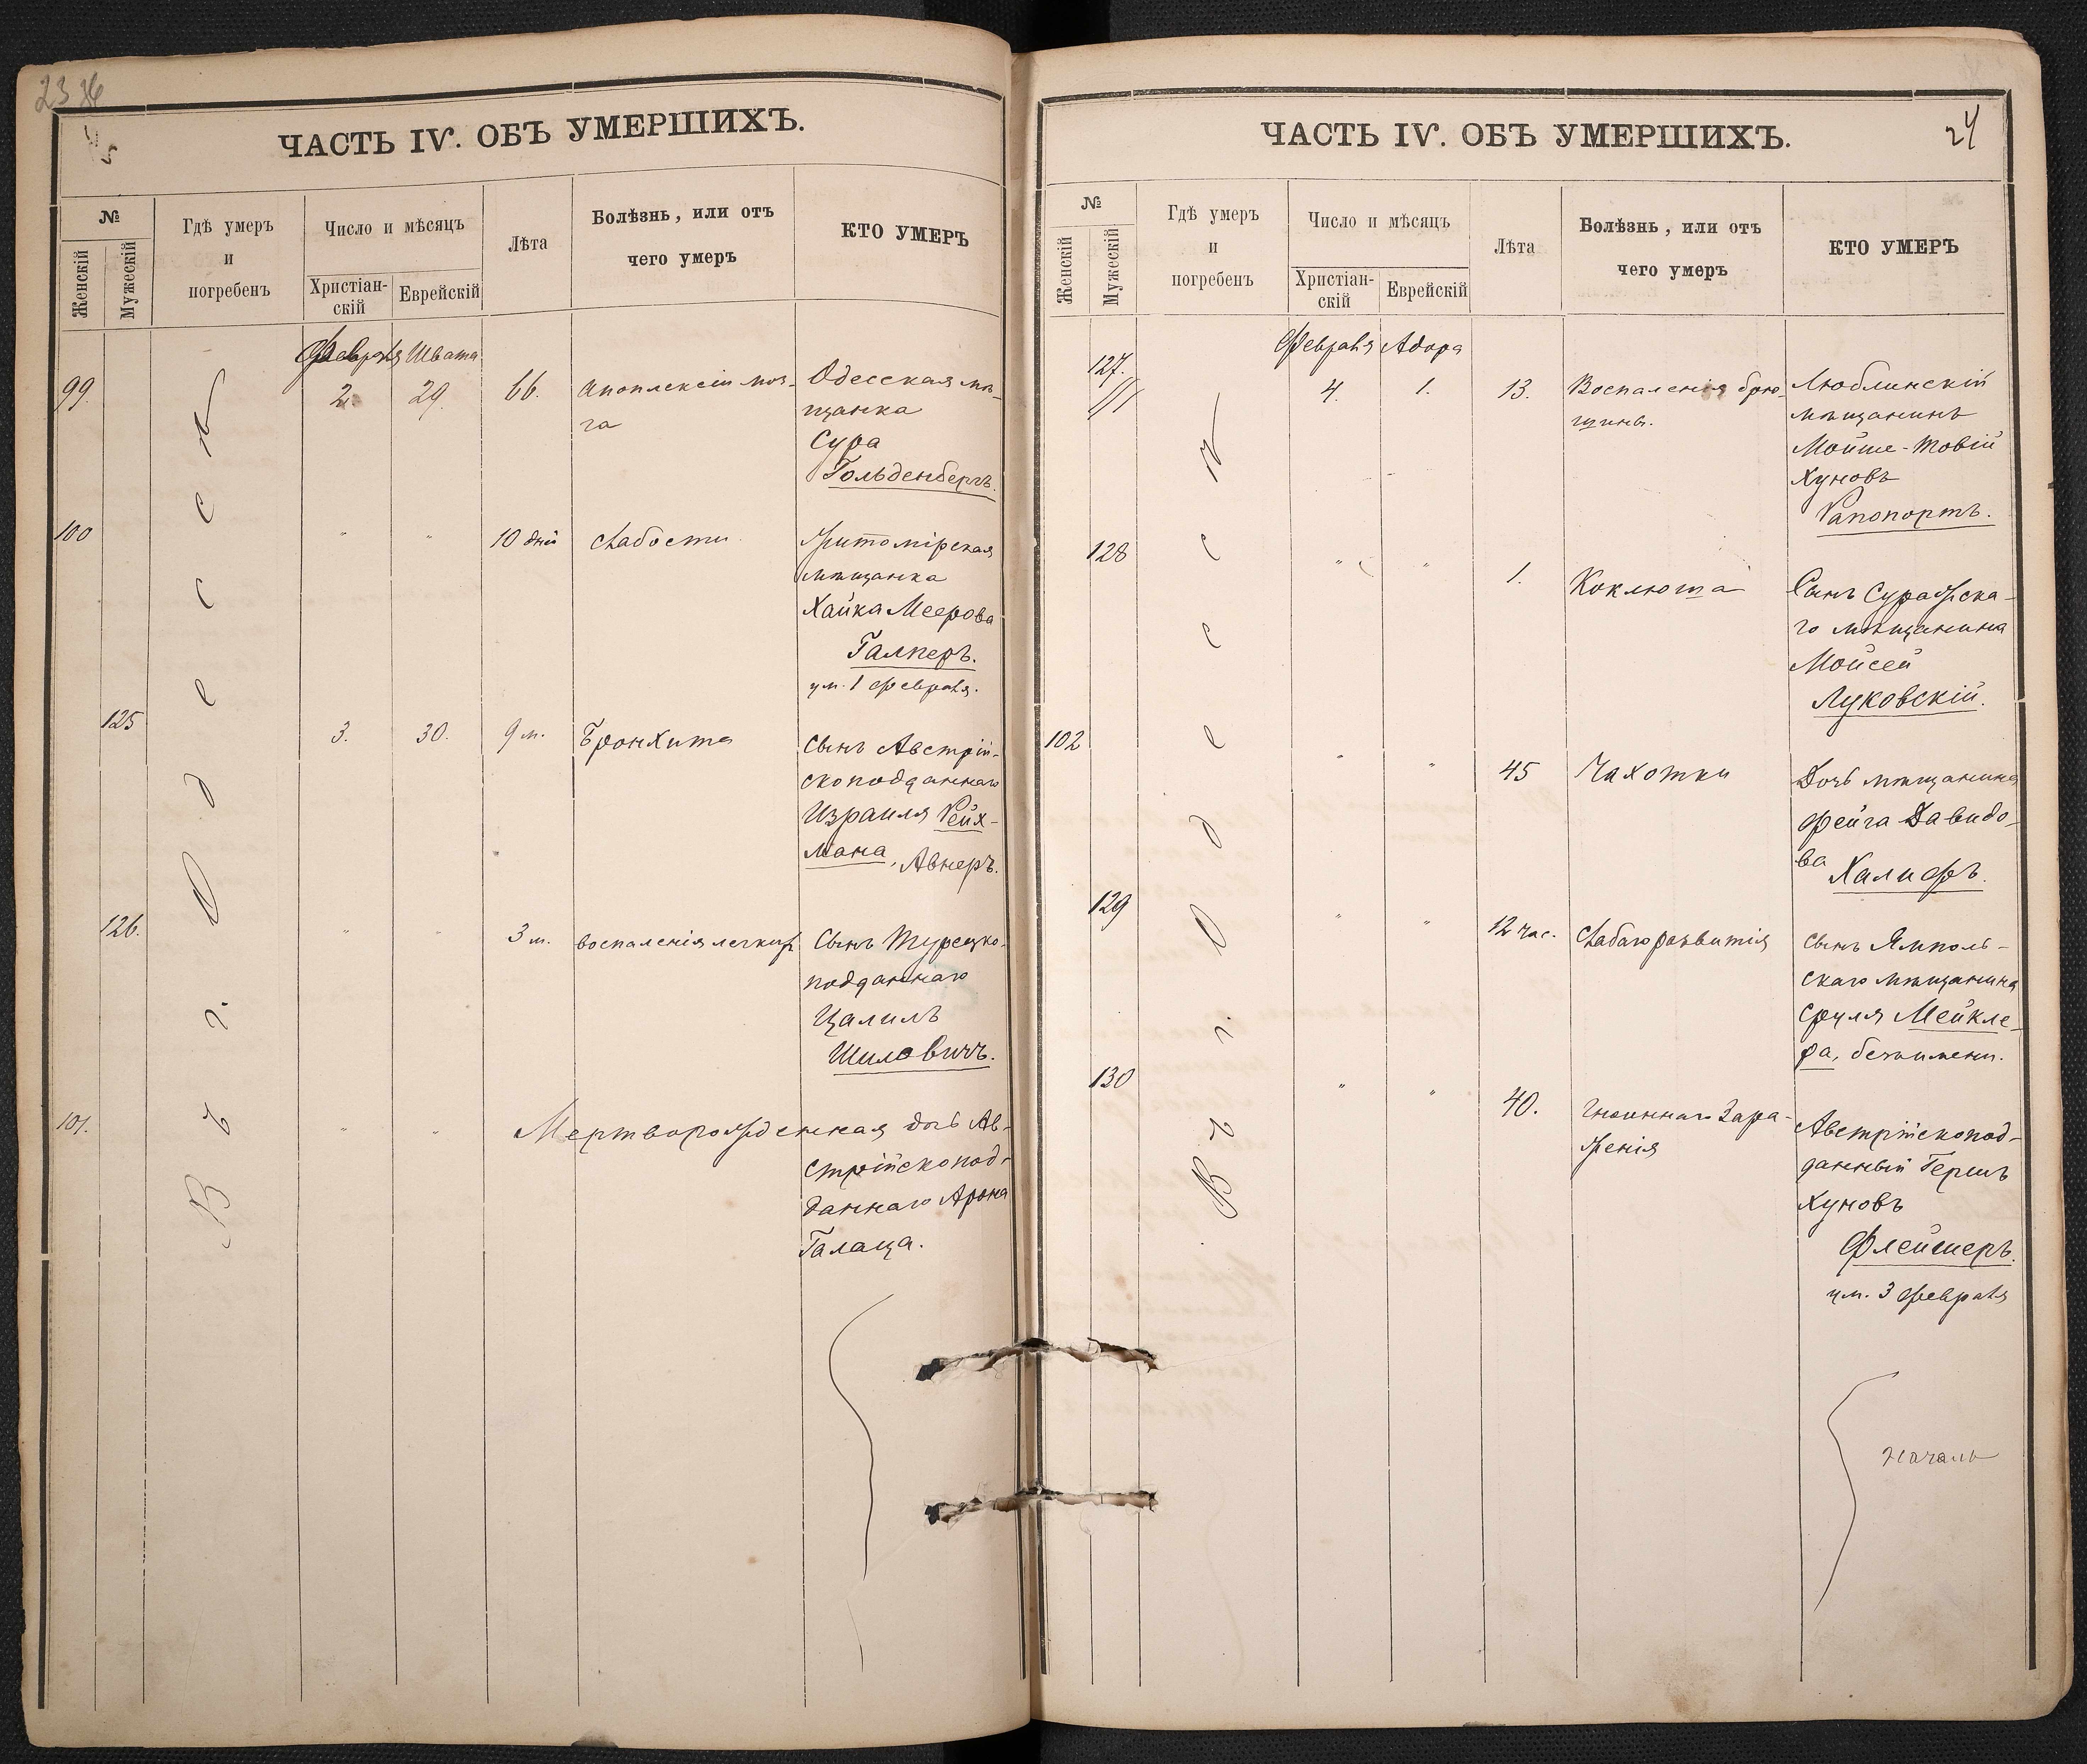 23
ЧАСТЬ IV. ОБЪ УМЕРШИХЪ.
№
Женскій
Мужескій
Гдѣ умеръ
и
погребенъ
Число и мѣсяцъ
Христіан-
скій
Еврейскій
Лѣта
Болѣзнь, или отъ
чего умеръ
КТО УМЕРЪ
Въ г. Одессѣ
Февраля Швата
99. 2. 29. 66. Апоплексіи моз- Одесская мѣ-
га щанка
Сура
Гольденбергъ.
100 " " 10 дній слабости Житомірская
мѣщанка
Хайка Меерова
Галперъ.
ум. 1 февраля.
125 3. 30. 9 м. Бронхита Сынъ Австрій-
скоподданнаго
Израиля Рейх-
мана, Авнеръ.
126. " " 3 м. воспаленія легкихъ Сынъ Турецко-
подданнаго
Цалиль
Шиловичъ.
101. " " Мертворожденная дочь Ав-
стрійскопод-
даннаго Арона
Галаца.
ЧАСТЬ IV. ОБЪ УМЕРШИХЪ.
24
№
Женскій
Мужескій
Гдѣ умеръ
и
погребенъ
Число и мѣсяцъ
Христіан-
скій
Еврейскій
Лѣта
Болѣзнь, или отъ
чего умеръ
КТО УМЕРЪ
Въ г. Одессѣ
Февраля Адора
127. 4. 1. 13. Воспаленія брю- Люблинскій
шины. мѣщанинъ
Мойше-Товій
Хуновъ
Рапопортъ.
128 " " 1. Коклюша Сынъ Суражска-
го мѣщанина
Мойсей
Луковскій.
102 " " 45 Чахотки Дочь мѣщанина
Фейга Давидо-
ва Халифъ.
129 " " 12 час. Слабаго развитія Сынъ Ямполь-
скаго мѣщанина
Сруля Мейкле-
ра, безъ имени.
130 " " 40. Гнойнаго Зара- Австрійскопод-
женія данный Гершъ
Хуновъ
Флейшеръ.
ум. 3 февраля